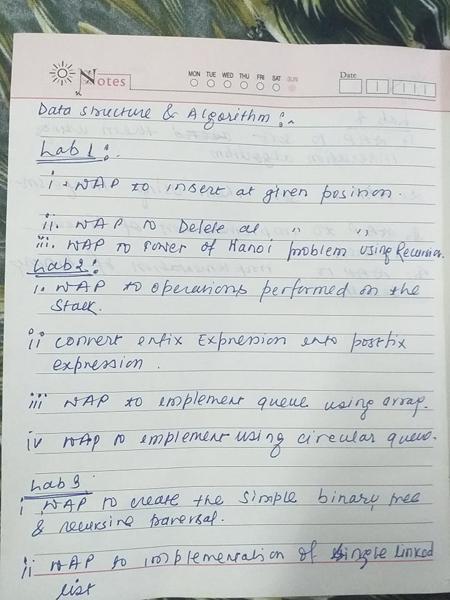 Notes
MON TUE WED THU FRI SAT SUN
Date
Data structure & Algorithm :-
Lab 1 :-
i. WAP to insert at given position.
ii. WAP to Delele at " "
iii. WAP to Tower of Hanoi problem using Recursion.
Lab 2 :
i. WAP to operations performed on the
Stack.
ii convert infix Expression into postfix
expression.
iii WAP to implement queue using array.
iv WAP to implement using circular queue.
Lab 3
i WAP to create the simple binary tree
& recursive traversal.
ii WAP to implementation of single linked
list